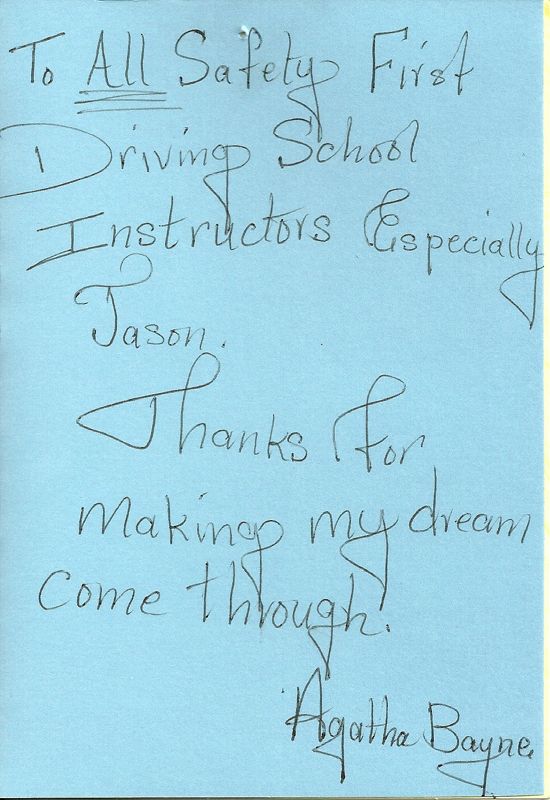 To All Safety First
Driving School
Instructors Especially
Jason.
Thanks For
making my dream
come through.
Agatha Bayne